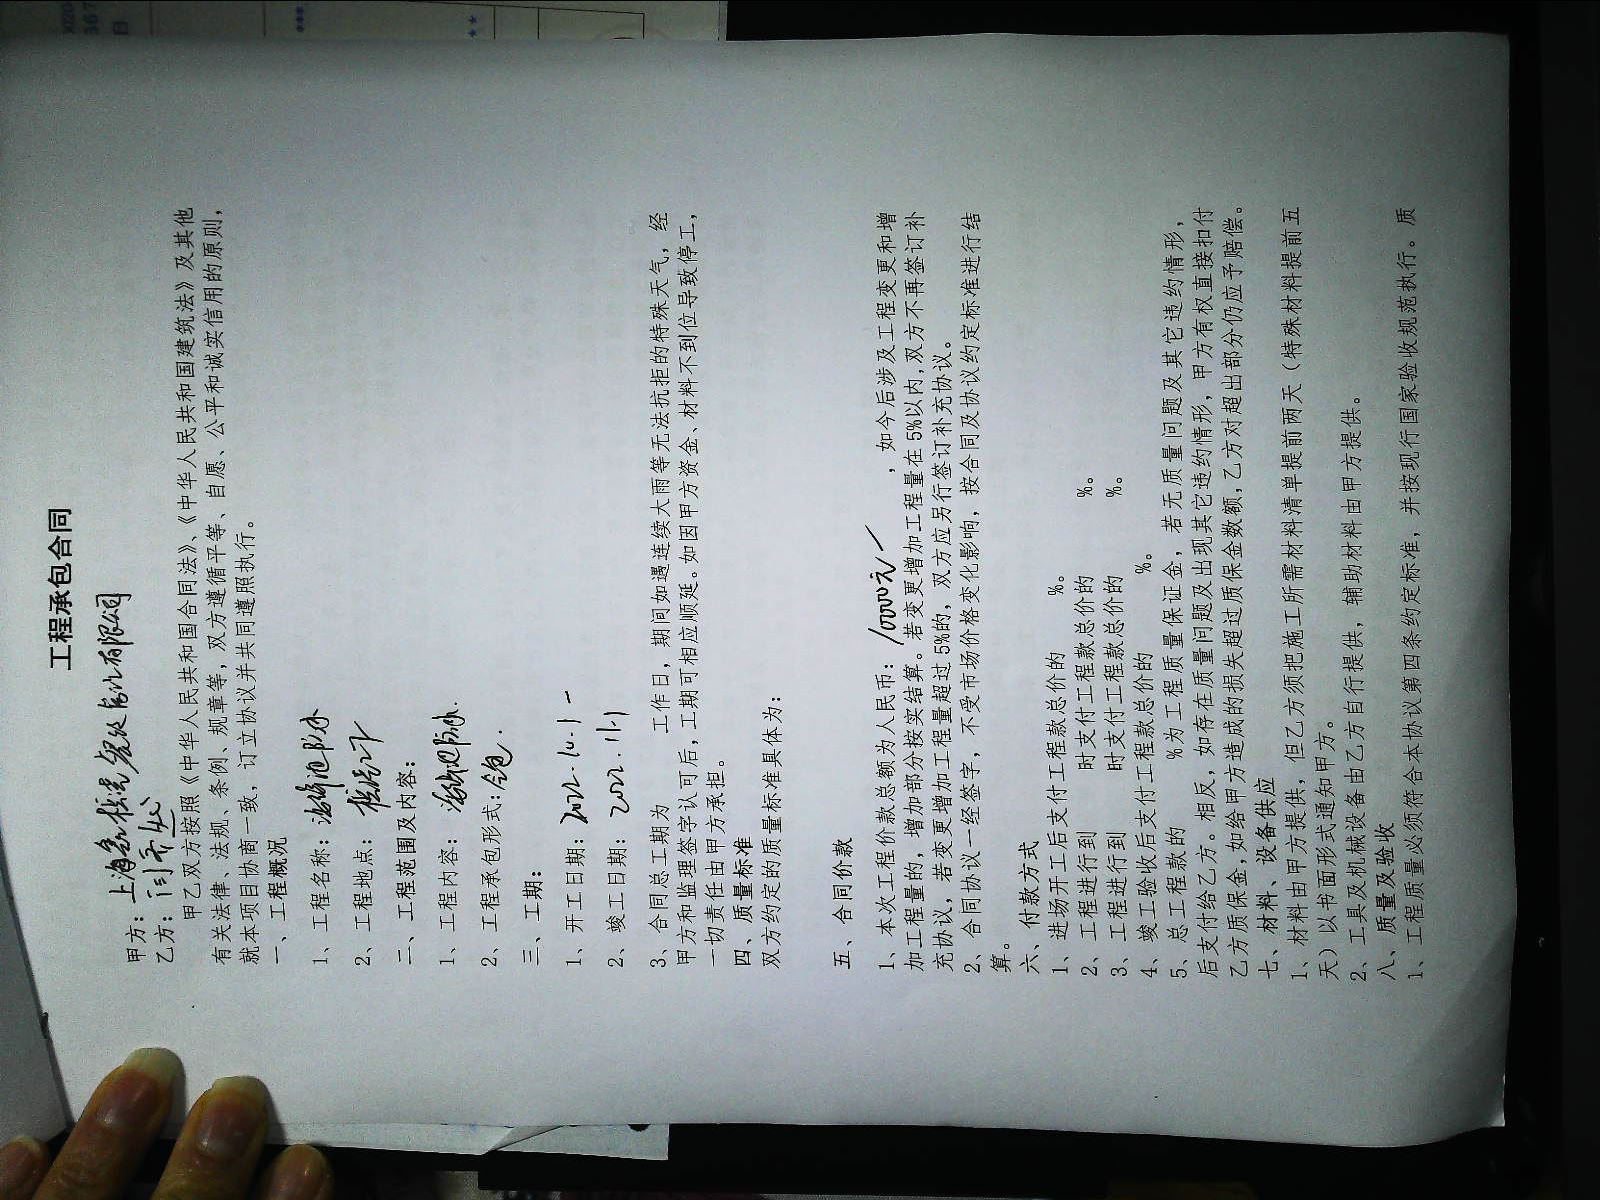 工程承包合同
甲方：上海 有限公司
乙方：闫
甲乙双方按照《中华人民共和国合同法》、《中华人民共和国建筑法》及其他
有关法律、法规、条例、规章等，双方遵循平等、自愿、公平和诚实信用的原则，
就本项目协商一致，订立协议并共同遵照执行。
一、工程概况
1、工程名称：池防水
2、工程地点：
二、工程范围及内容：
1、工程内容：池防水.
2、工程承包形式：包.
三、工期：
1、开工日期：2022.10.1
2、竣工日期：2022.11.1
3、合同总工期为 工作日，期间如遇连续大雨等无法抗拒的特殊天气，经
甲方和监理签字认可后，工期可相应顺延。如因甲方资金、材料不到位导致停工，
一切责任由甲方承担。
四、质量标准
双方约定的质量标准具体为：
五、合同价款
1、本次工程价款总额为人民币：10000元 ，如今后涉及工程变更和增
加工程量的，增加部分按实结算。若变更增加工程量在5%以内，双方不再签订补
充协议，若变更增加工程量超过5%的，双方应另行签订补充协议。
2、合同协议一经签字，不受市场价格变化影响，按合同及协议约定标准进行结
算。
六、付款方式
1、进场开工后支付工程款总价的 %。
2、工程进行到 时支付工程款总价的 %。
3、工程进行到 时支付工程款总价的 %。
4、竣工验收后支付工程款总价的 %。
5、总工程款的 %为工程质量保证金，若无质量问题及其它违约情形，
后支付给乙方。相反，如存在质量问题及出现其它违约情形，甲方有权直接扣付
乙方质保金，如给甲方造成的损失超过质保金数额，乙方对超出部分仍应予赔偿。
七、材料、设备供应
1、材料由甲方提供，但乙方须把施工所需材料清单提前两天（特殊材料提前五
天）以书面形式通知甲方。
2、工具及机械设备由乙方自行提供，辅助材料由甲方提供。
八、质量及验收
1、工程质量必须符合本协议第四条约定标准，并按现行国家验收规范执行。质